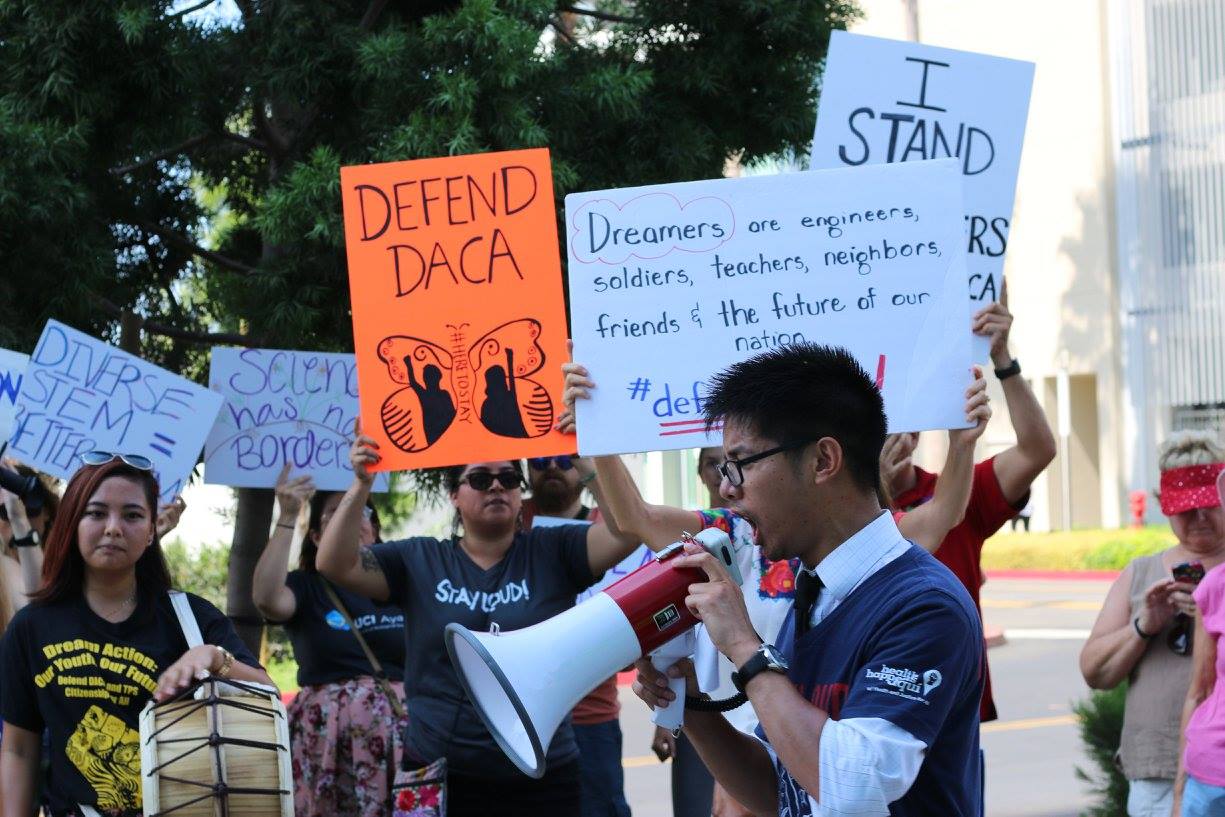 I
STAND
ERS
CA
DEFEND
DACA
#HERETOSTAY
Dreamers are engineers,
soldiers, teachers, neighbors,
friends & the future of our
nation
#def
DIVERSE
STEM =
BETTER
Science
has no
Borders
STAY LOUD!
UCI Aya
Dream Action:
Our Youth, Our Future
Defend DACA and TPS
Citizenship for All
health
happens
aquí